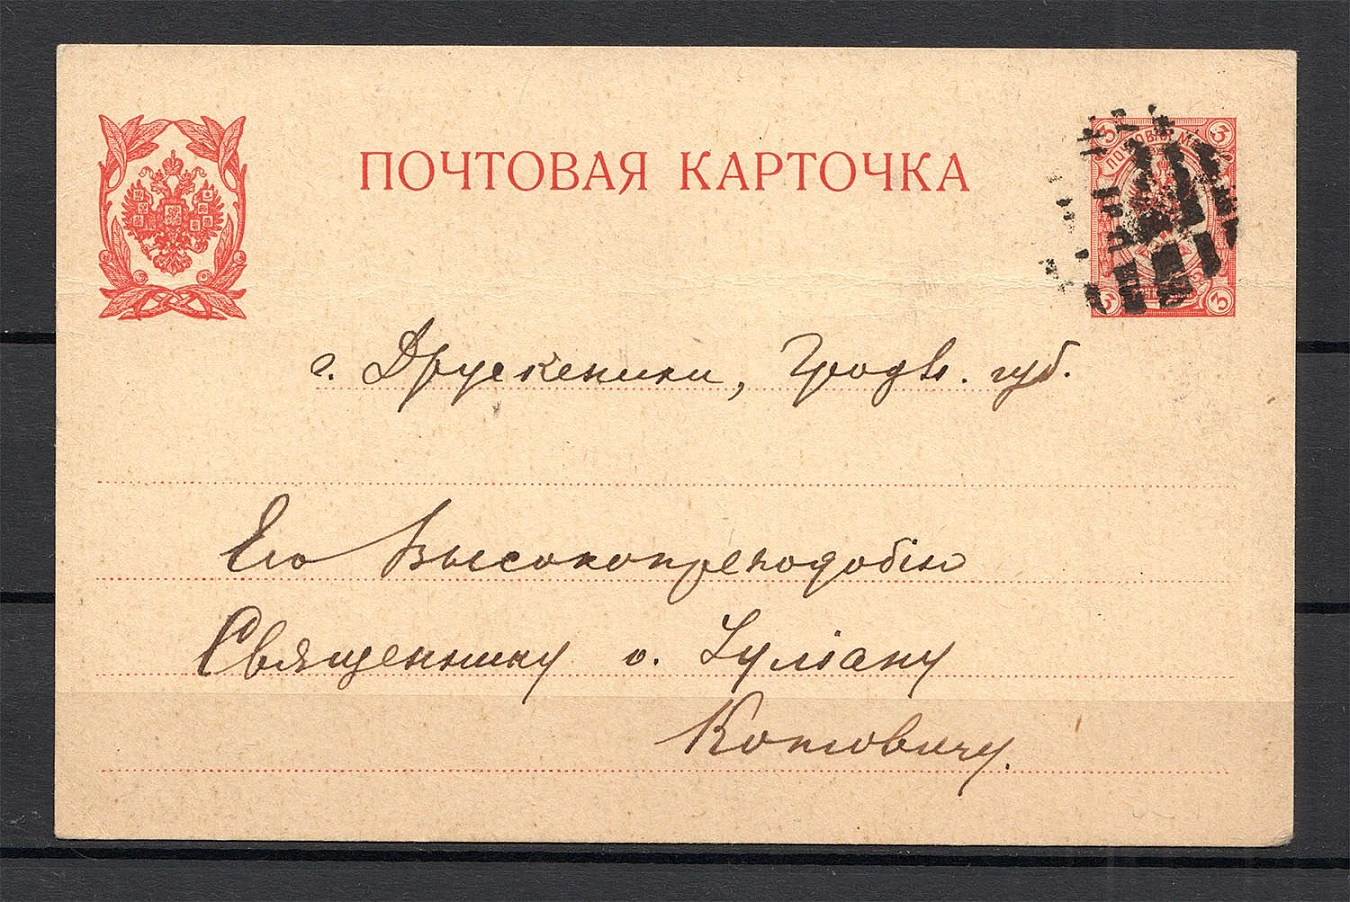 ПОЧТОВАЯ КАРТОЧКА
3 ПОЧТОВАЯ М 3
3 3
г. Друскеники, Гродн. губ.
Его Высокопреподобію
Священнику о. Іуліану
Котовичу.